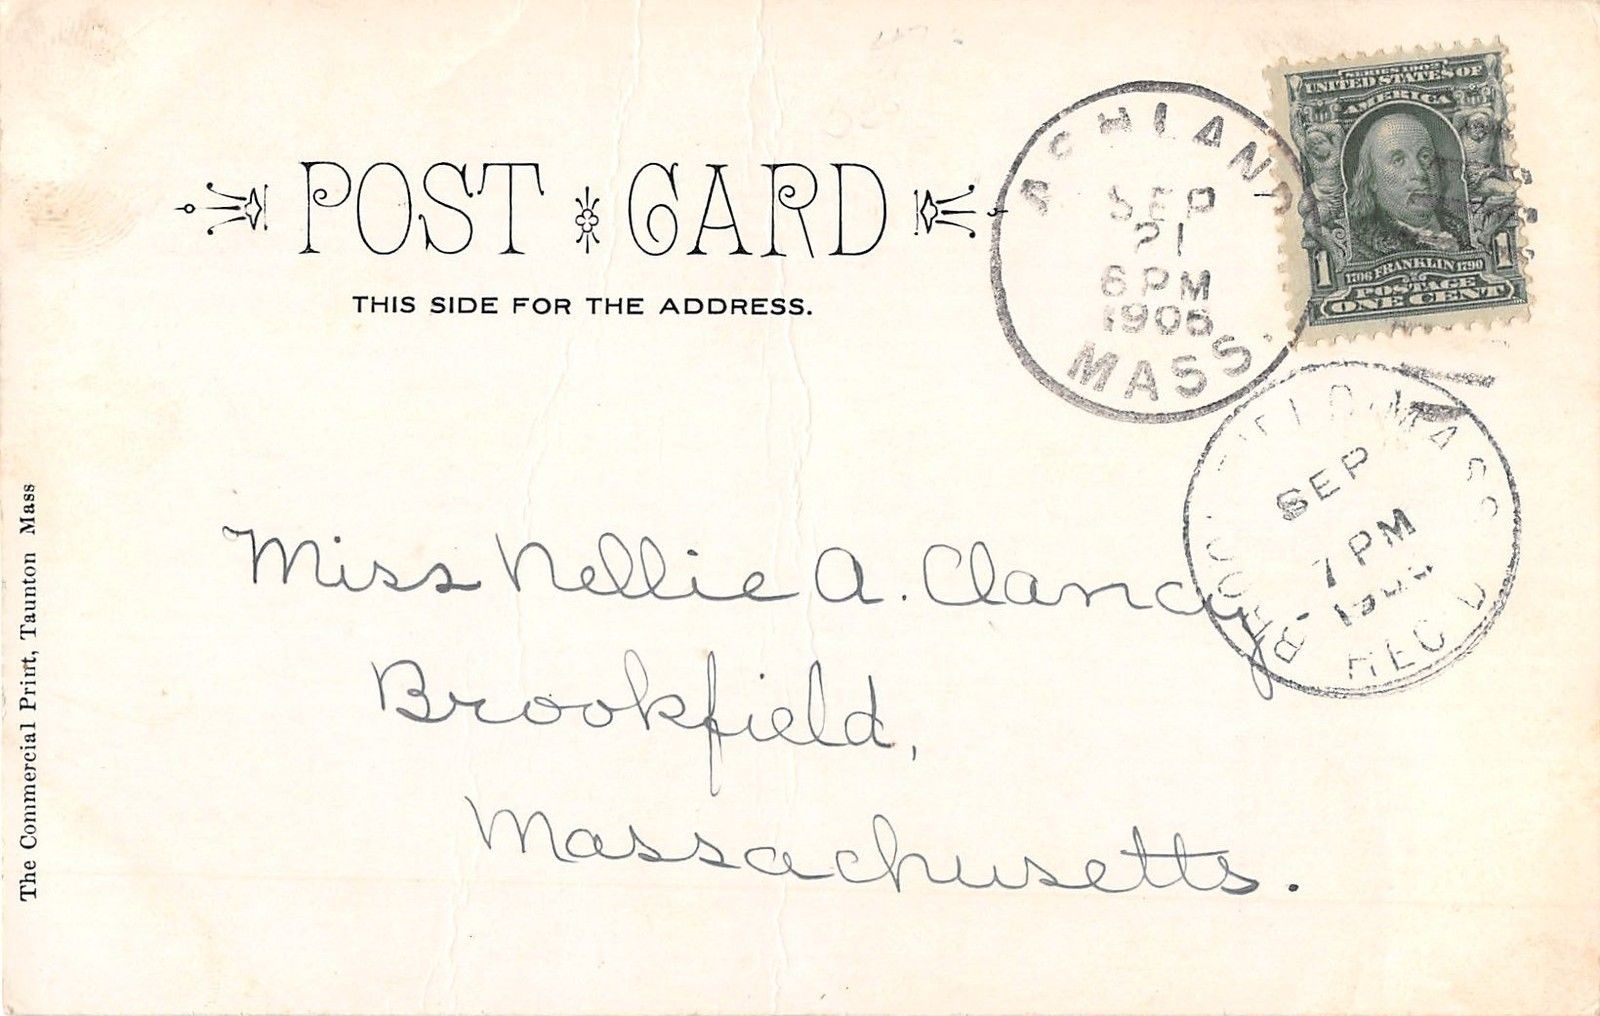 POST CARD
THIS SIDE FOR THE ADDRESS.
SEP
21
6 PM
MASS.
SERIES 1902
UNITED STATES OF
AMERICA
1 1
1706 FRANKLIN 1790
POSTAGE
ONE CENT
MASS
SEP
7 PM
REC'D
Miss Nellie A. Clancy
Brookfield,
Massachusetts.
The Commercial Print, Taunton Mass